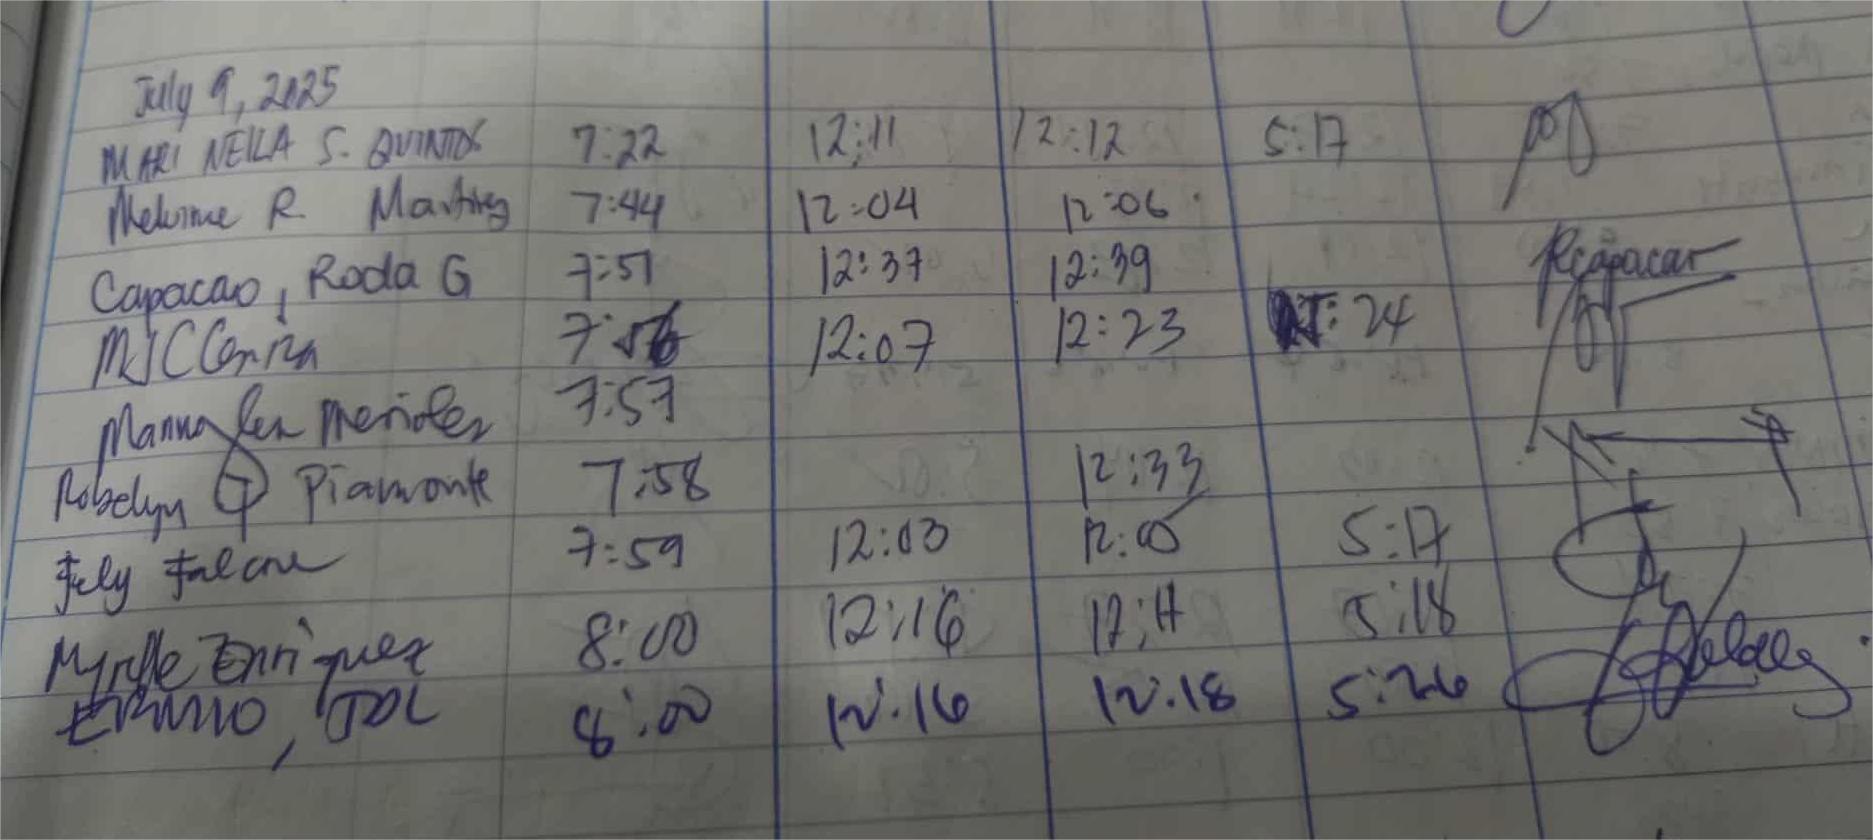 July 9, 2025
MARI NEILA S. QUINTOS 7:22 12:11 12:12 5:17
Melvine R. Martinez 7:44 12:04 12:06
Capacao, Roda G 7:51 12:37 12:39 Rcapacao
MJC Ceniza 7:56 12:07 12:23 24
Manna Meriales 7:57
Robelyn Piamonte 7:58 12:33
Fely Falcone 7:59 12:03 12:05 5:17
Myrtle Enriquez 8:00 12:16 12:17 5:18
ERMIO, JDL 8:00 12:16 12:18 5:26